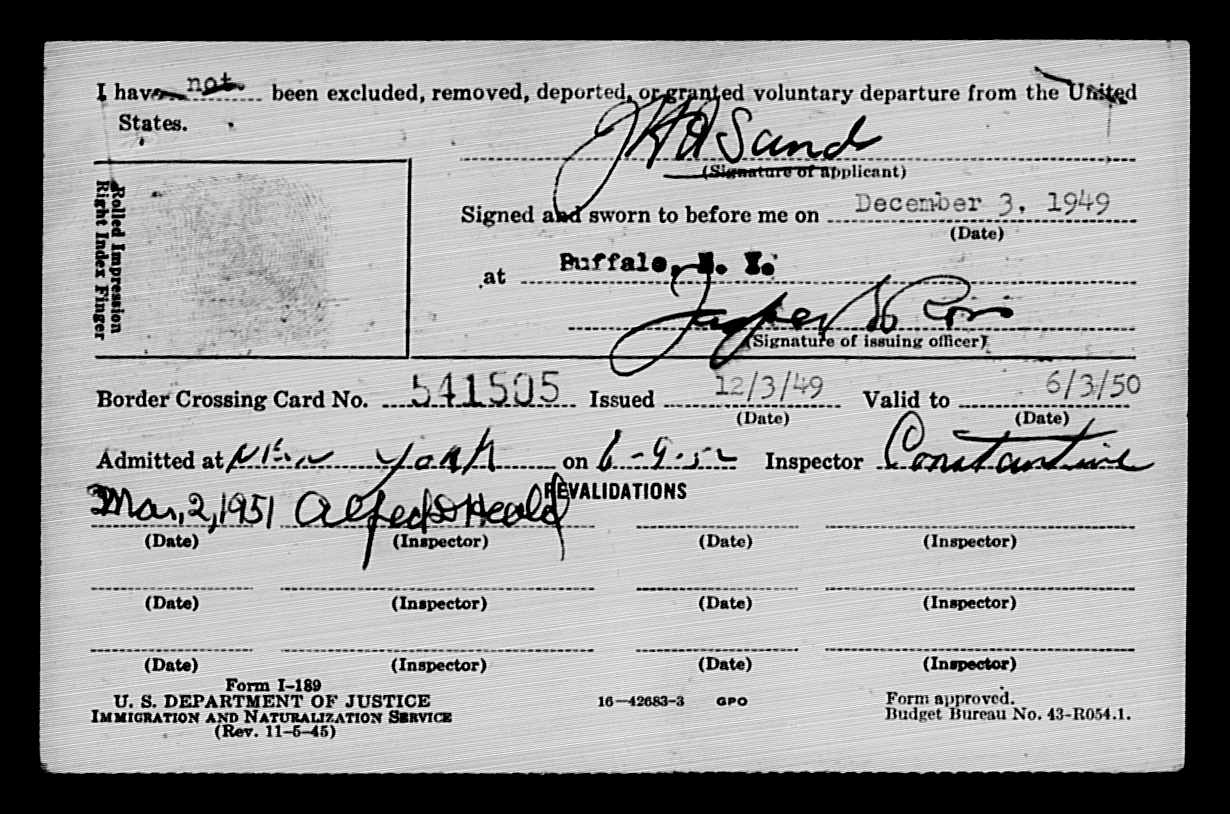 I have not been excluded, removed, deported, or granted voluntary departure from the United
States.
J H A Sand
(Signature of applicant)
Rolled Impression
Right Index Finger
Signed and sworn to before me on December 3, 1949
(Date)
at Buffalo, N. Y.
(Signature of issuing officer)
Border Crossing Card No. 541505 Issued 12/3/49 Valid to 6/3/50
(Date) (Date)
Admitted at New York on 6-9-52 Inspector Constantine
REVALIDATIONS
Mar, 2, 1951 Alfred Heald
(Date) (Inspector) (Date) (Inspector)
(Date) (Inspector) (Date) (Inspector)
(Date) (Inspector) (Date) (Inspector)
Form I-189
U. S. DEPARTMENT OF JUSTICE
IMMIGRATION AND NATURALIZATION SERVICE
(Rev. 11-5-45)
16—42683-3 GPO
Form approved.
Budget Bureau No. 43-R054.1.